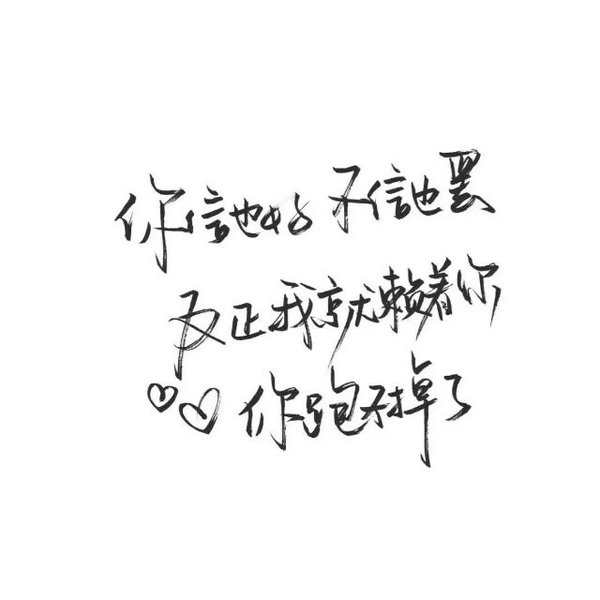 你信也好不信也罢
反正我就赖着你
你跑不掉了